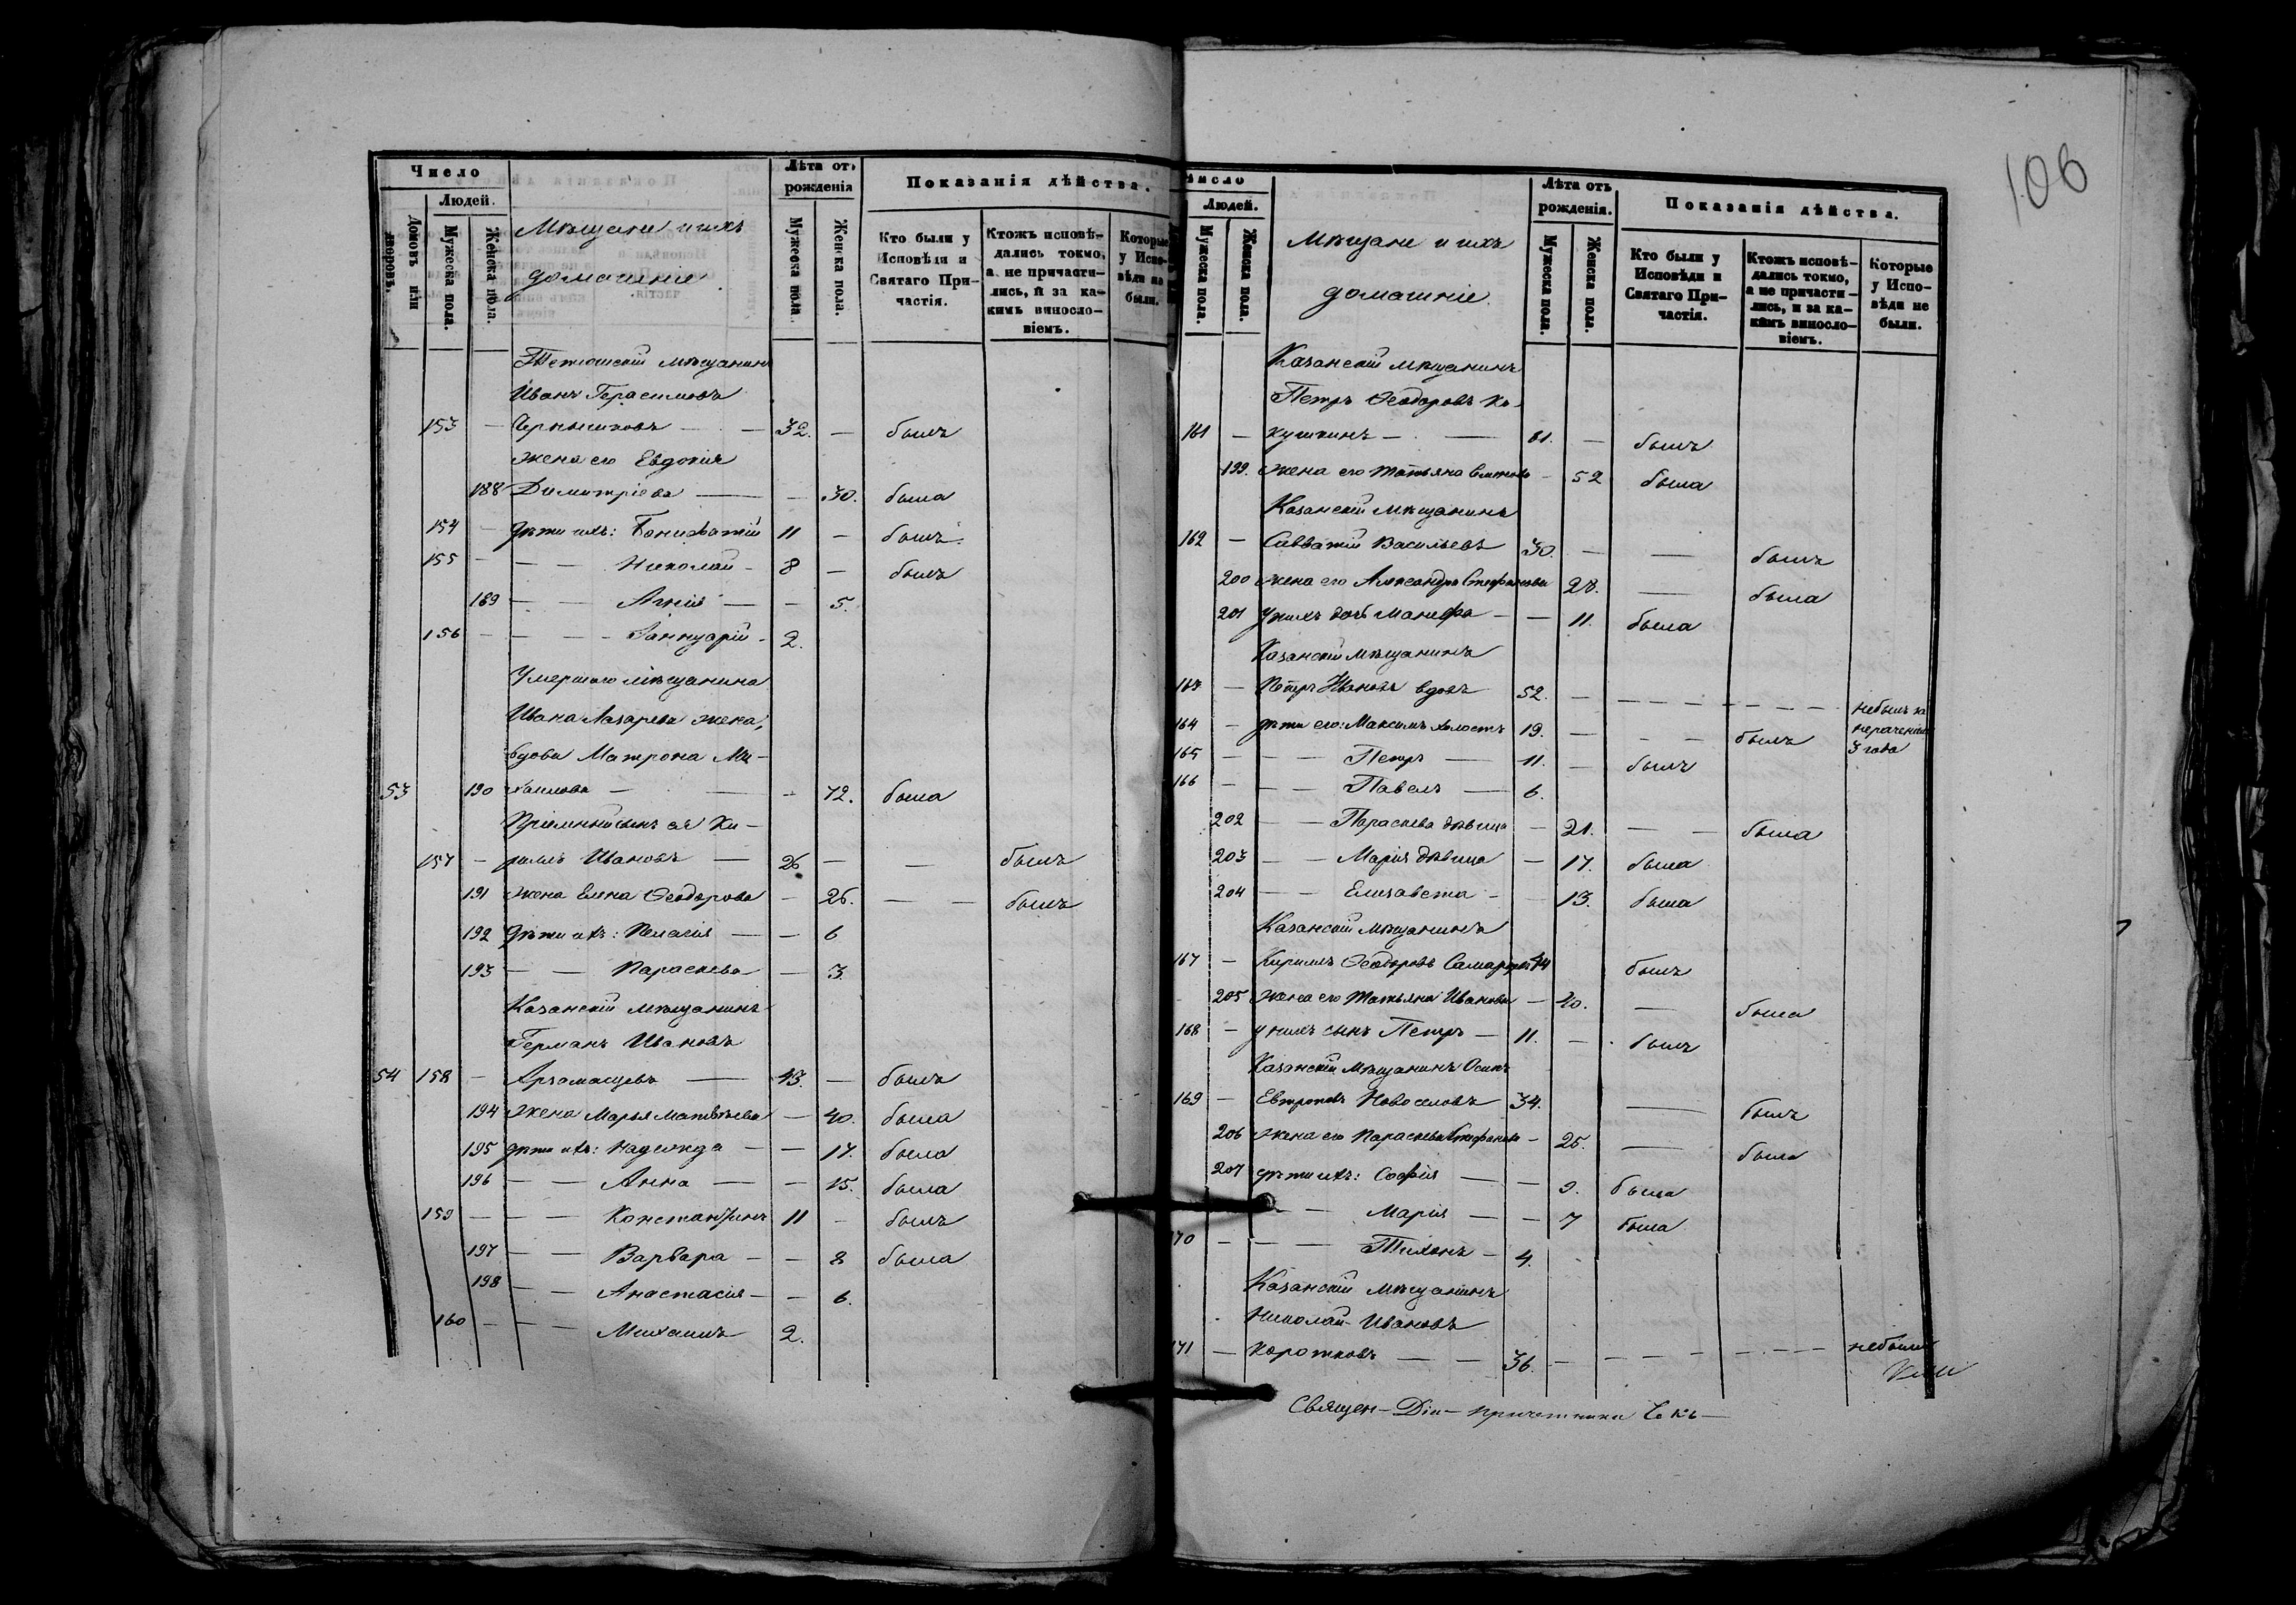 106
Число
Людей.
Домовъ или дворовъ.
Мужеска пола.
Женска пола.
Мѣщане и ихъ
домашніе.
Лѣта отъ рожденія
Мужеска пола.
Женска пола.
Показанія дѣйства.
Кто были у Исповѣди и Святаго Причастія.
Ктожъ исповѣдались токмо, а не причастились, и за какимъ винословіемъ.
Которые у Исповѣди не были.
Тетюшскій мѣщанинъ
Иванъ Герасимовъ
153 — — — 32. — былъ
жена его Евдокія
188 Димитріева — — 30. была
154 — дѣти ихъ: Вонифатій 11 — былъ
155 — — — Николай — 8 — былъ
189 — — Агнія — — 5.
156 — — — Іаннуарій — 2.
Умершаго мѣщанина
Ивана Лазарева жена,
вдова Матрона Ми-
53 190 хаилова — — — 72. была
Пріемный сынъ ея Ки-
157 — риллъ Ивановъ — 26 — — былъ
191 жена Елена Ѳеодорова — 26. — — былъ
192 дѣти ихъ: Пелагія — — 6
193 — — Параскева — 3.
Казанскій мѣщанинъ
Германъ Ивановъ
54 158 — Арзамасцевъ — 43. — былъ
194 жена Марья Матвѣева — 40. была
195 дѣти ихъ: Надежда — — 17. была
196 — — Анна — — 15. была
159 — — — Константинъ 11 — былъ
197 — — Варвара — — 8 была
198 — — Анастасія — — 6.
160 — — — Михаилъ 2.
Число
Людей.
Мужеска пола.
Женска пола.
Мѣщане и ихъ
домашніе.
Лѣта отъ рожденія.
Мужеска пола.
Женска пола.
Показанія дѣйства.
Кто были у Исповѣди и Святаго Причастія.
Ктожъ исповѣдались токмо, а не причастились, и за какимъ винословіемъ.
Которые у Исповѣди не были.
Казанскій мѣщанинъ
Петръ Ѳеодоровъ Ко-
161 — кушкинъ — — 61. — былъ
199. жена его Татьяна — 52 была
Казанскій мѣщанинъ
162 — Савватій Васильевъ 30. — — былъ
200 жена его Александра Стефанова 28. — была
201 у нихъ дочь Манефа — — 11. была
Казанскій мѣщанинъ
163 — Петръ Ивановъ вдовъ 52. — — — — — — — небылъ за
164 — дѣти его: Максимъ холостъ 19. — — — былъ нераченіемъ
3 года
165 — — — Петръ — 11. — былъ
166 — — — Павелъ — 6.
202 — — Параскева дѣвица — 21. — — была
203 — — Марія дѣвица — 17. была
204 — — Елизавета — — 13. была
Казанскій мѣщанинъ
167 — Кириллъ Ѳеодоровъ 44 былъ
205 жена его Татьяна Иванова — 40. — была
168 — у нихъ сынъ Петръ — 11. — былъ
Казанскій мѣщанинъ Осипъ
169 — Евтроповъ Новоселовъ 34. — былъ
206 жена его Параскева Стефанова — 25. — была
207 дѣти ихъ: Софія — — 9. была
— — Марія — — 7 была
170 — — — Тихонъ — 4.
Казанскій мѣщанинъ
Николай Ивановъ
171 — Коротковъ — — 36. — — — — — — небылъ
Священ— Діа— причетники